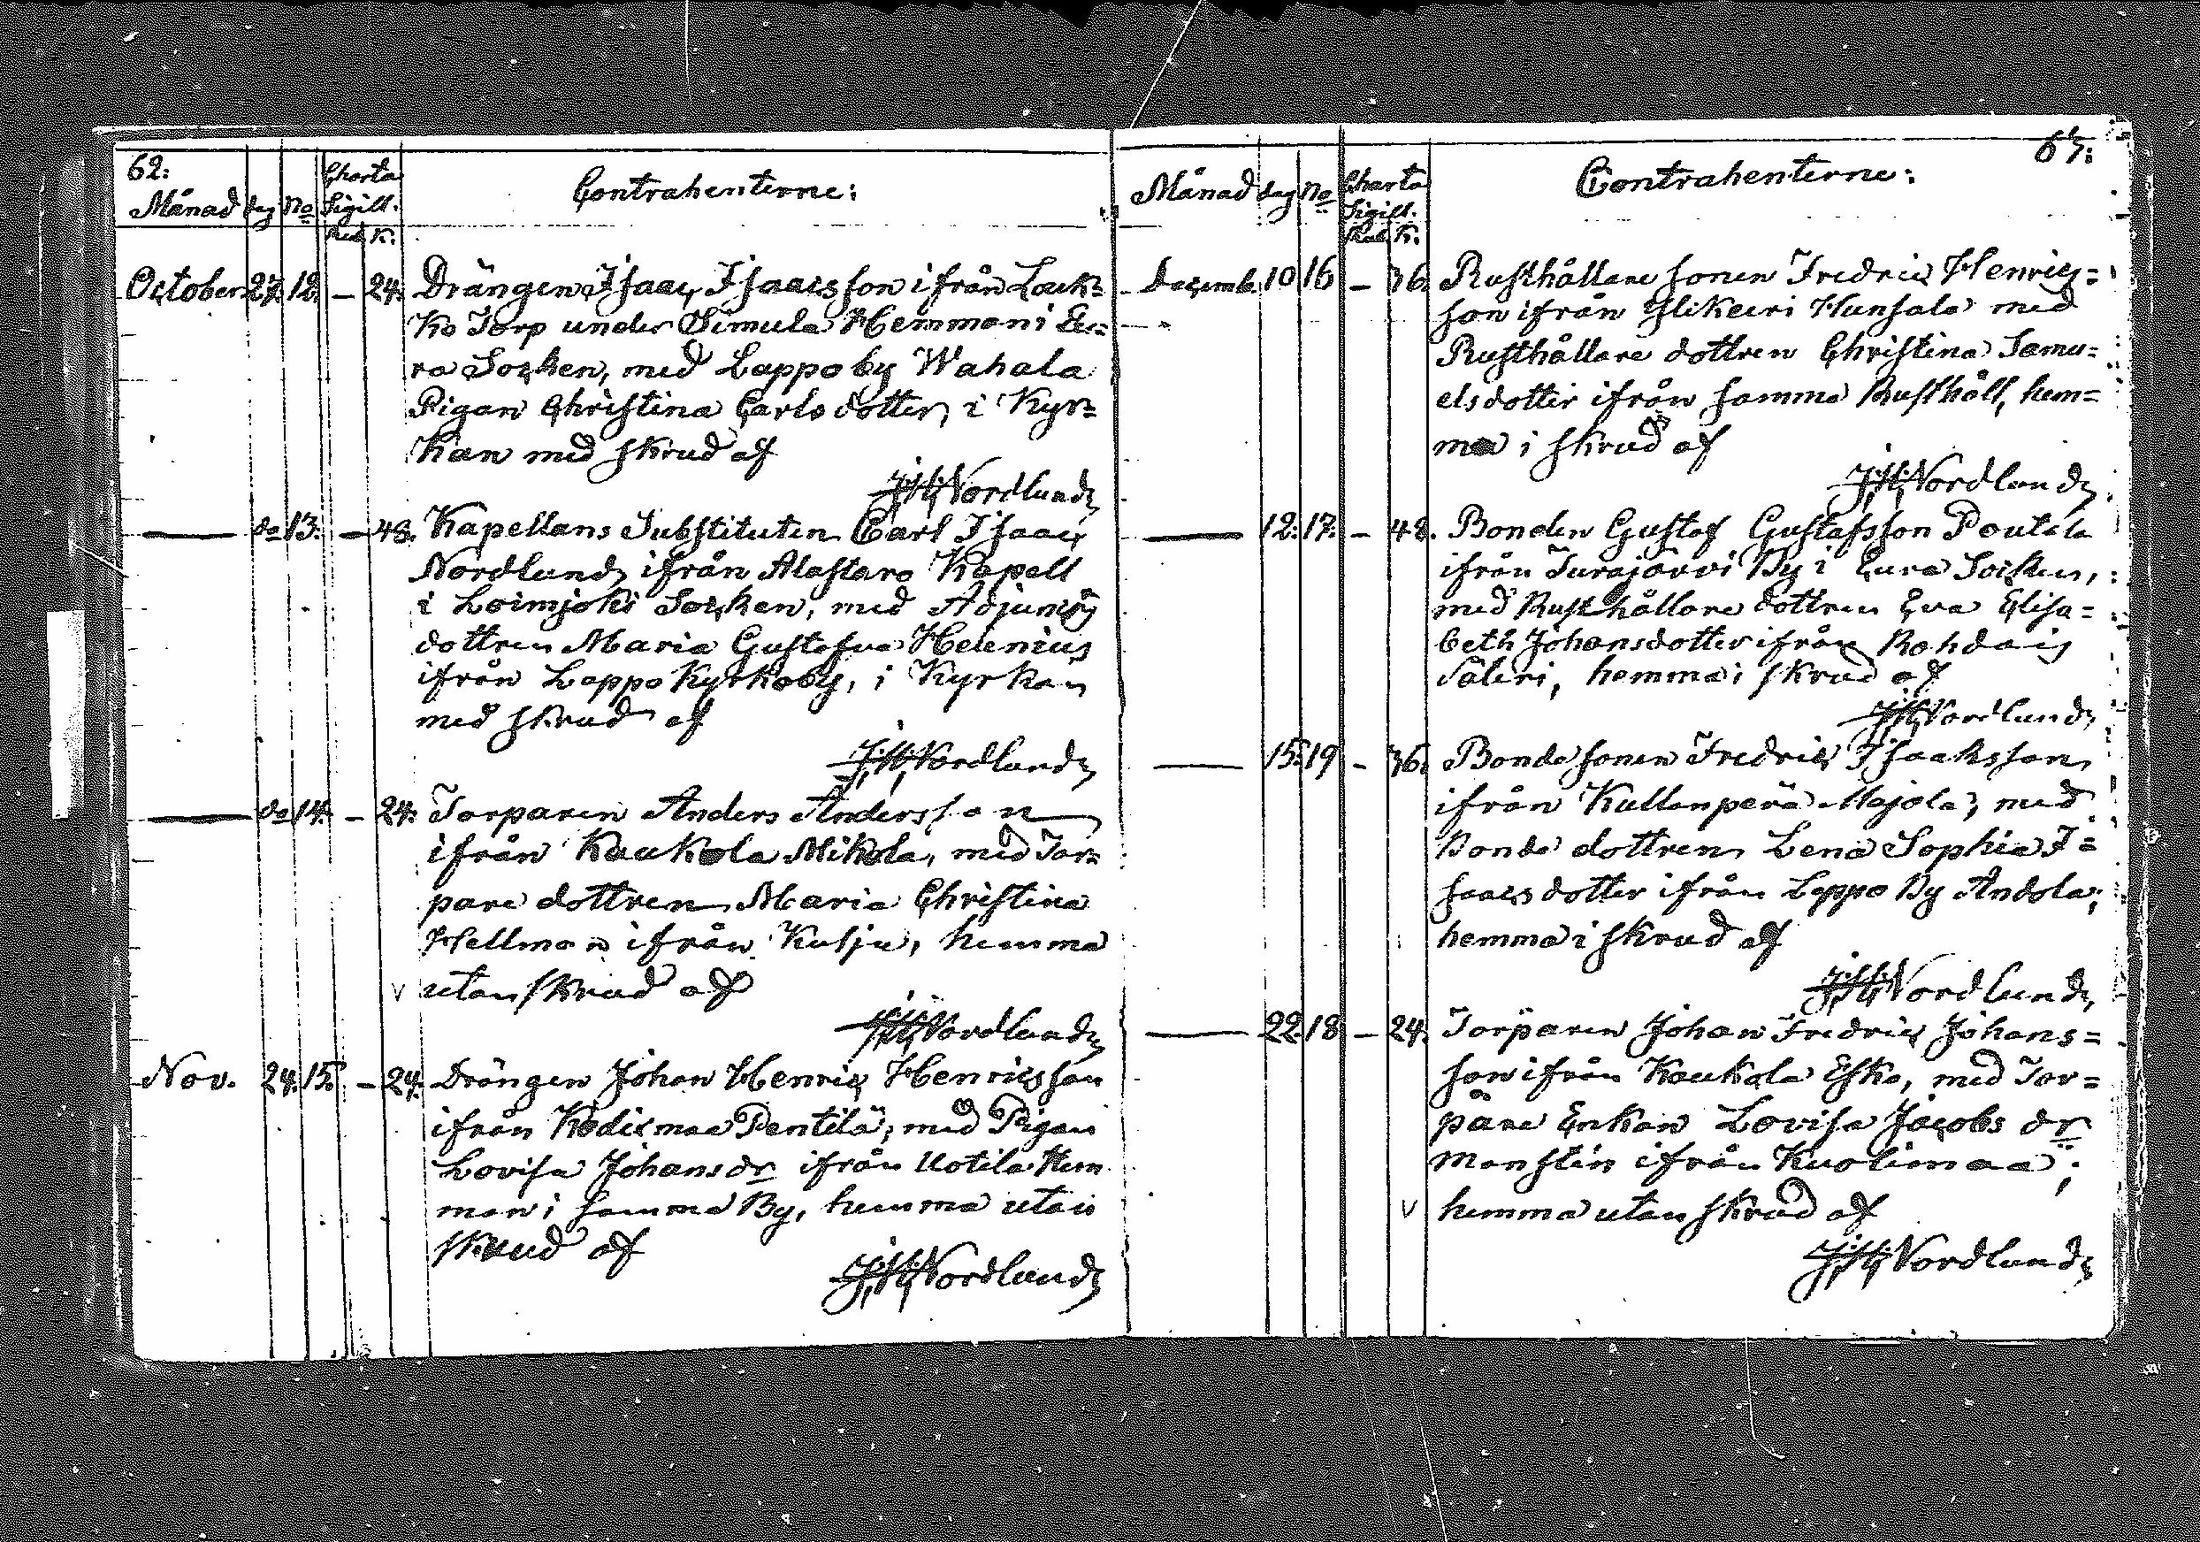 62:
Månad dag No Charta Sigill. Rub. K. Contrahenterne:
October 27. 12. — 24. Drängen Isaac Isaacsson ifrån Louk=
ko Torp under Simula Hemman i Eu=
ra Socken, med Lappo by Wahala
Pigan Christina Carlsdotter, i Kyr=
kan med skrud af
J. H. Nordlund
— do 13. — 48. Kapellans Substituten Carl Isaac
Nordlund, ifrån Alastaro Kapell
i Loimjoki Socken, med Adjuncts
dottren Maria Gustafva Helenius
ifrån Lappo Kyrkoby, i Kyrkan
med skrud af
J. H. Nordlund
— do 14. — 24. Torparen Anders Andersson
ifrån Kaukola Mikola, med Tor=
pare dottren Maria Christina
Hellman ifrån Kulju, hemma
v utan skrud af
J. H. Nordlund
Nov. 24. 15. — 24. Drängen Johan Henric Henricsson
ifrån Kodixmaa Pentilä, med Pigan
Lovisa Johansdr ifrån Uotila Hem
man i samma By, hemma utan
skrud af
J. H. Nordlund
63:
Månad dag No Charta Sigill. Rub. K. Contrahenterne:
Decemb. 10 16 — 36. Rusthållare sonen Fredric Henrics=
son ifrån Ylikeiri Hunsala med
Rusthållare dottren Christina Samu=
elsdotter ifrån samma Rusthåll, hem=
ma i skrud af
J. H. Nordlund
— 12. 17. — 48. Bonden Gustaf Gustafsson Poutala
ifrån Turajärvi By i Eura Socken,
med Rusthållare dottren Eva Elisa=
beth Johansdotter ifrån Rohdais
Säleri, hemma i skrud af
J. H. Nordlund
— 15. 19 — 36. Bonde sonen Fredric Isaaksson
ifrån Kullanperä Majola, med
Bonde dottren Lena Sophia I=
saacsdotter ifrån Lappo By Andola;
hemma i skrud af
J. H. Nordlund
— 22. 18 — 24. Torparen Johan Fredric Johans=
son ifrån Kaukola Esko, med Tor=
pare Enkan Lovisa Jacobs dr
Monstin ifrån Kuolimaa;
v hemma utan skrud af
J. H. Nordlund